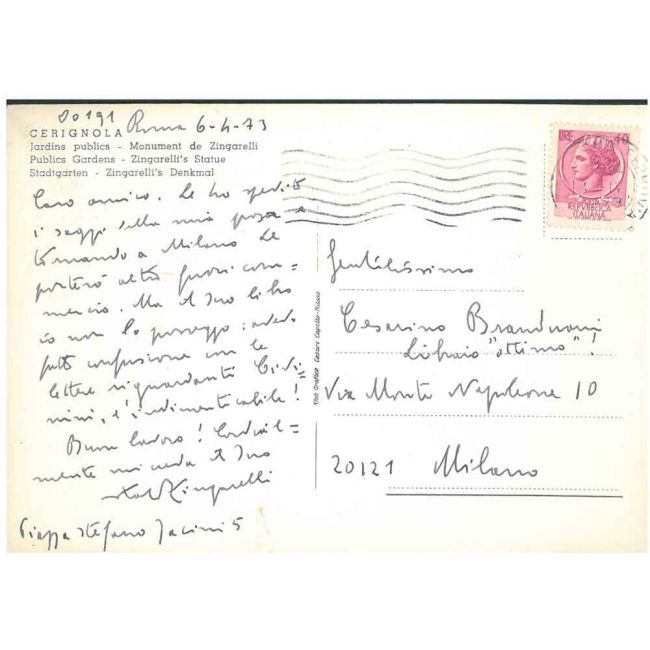 00191 Roma 6-4-73
CERIGNOLA
Jardins publics - Monument de Zingarelli
Publics Gardens - Zingarelli's Statue
Stadtgarten - Zingarelli's Denkmal
Caro amico. Le ho spedito
i saggi sulla mia poesia e
tornando a Milano Le
porterò altro fuori com=
mercio. Ma il Suo libro
io non lo posseggo: avevo
fatto confusione con le
lettere riguardanti
mini, è indimenticabile!
Buon lavoro! Cordial=
mente mi creda il Suo
Italo Zingarelli
Piazza Stefano Jacini 5
Tipi Grafica Cesare Capello-Milano
LIRE 40
REPVBBLICA
ITALIANA
Gentilissimo
Cesarino Branduani
Libraio "ottimo"!
Via Monte Napoleone 10
20121 Milano